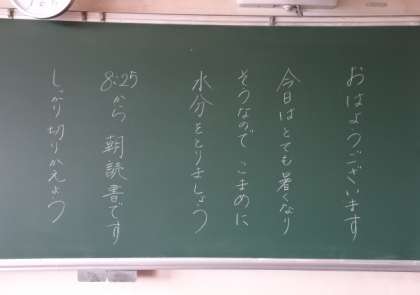 おはようございます
今日はとても暑くなり
そうなので こまめに
水分をとりましょう
8:25から 朝読書です
しっかり切りかえよう